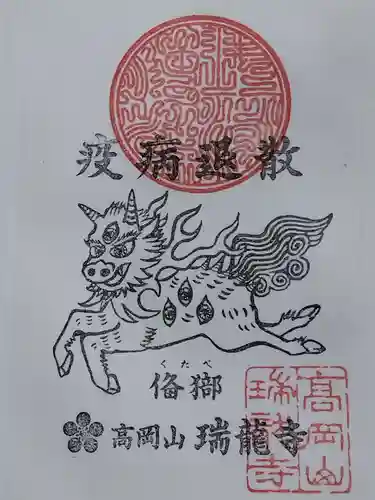 疫病退散
くたべ
俻𤟹
高岡山 瑞龍寺
高岡山
瑞龍寺